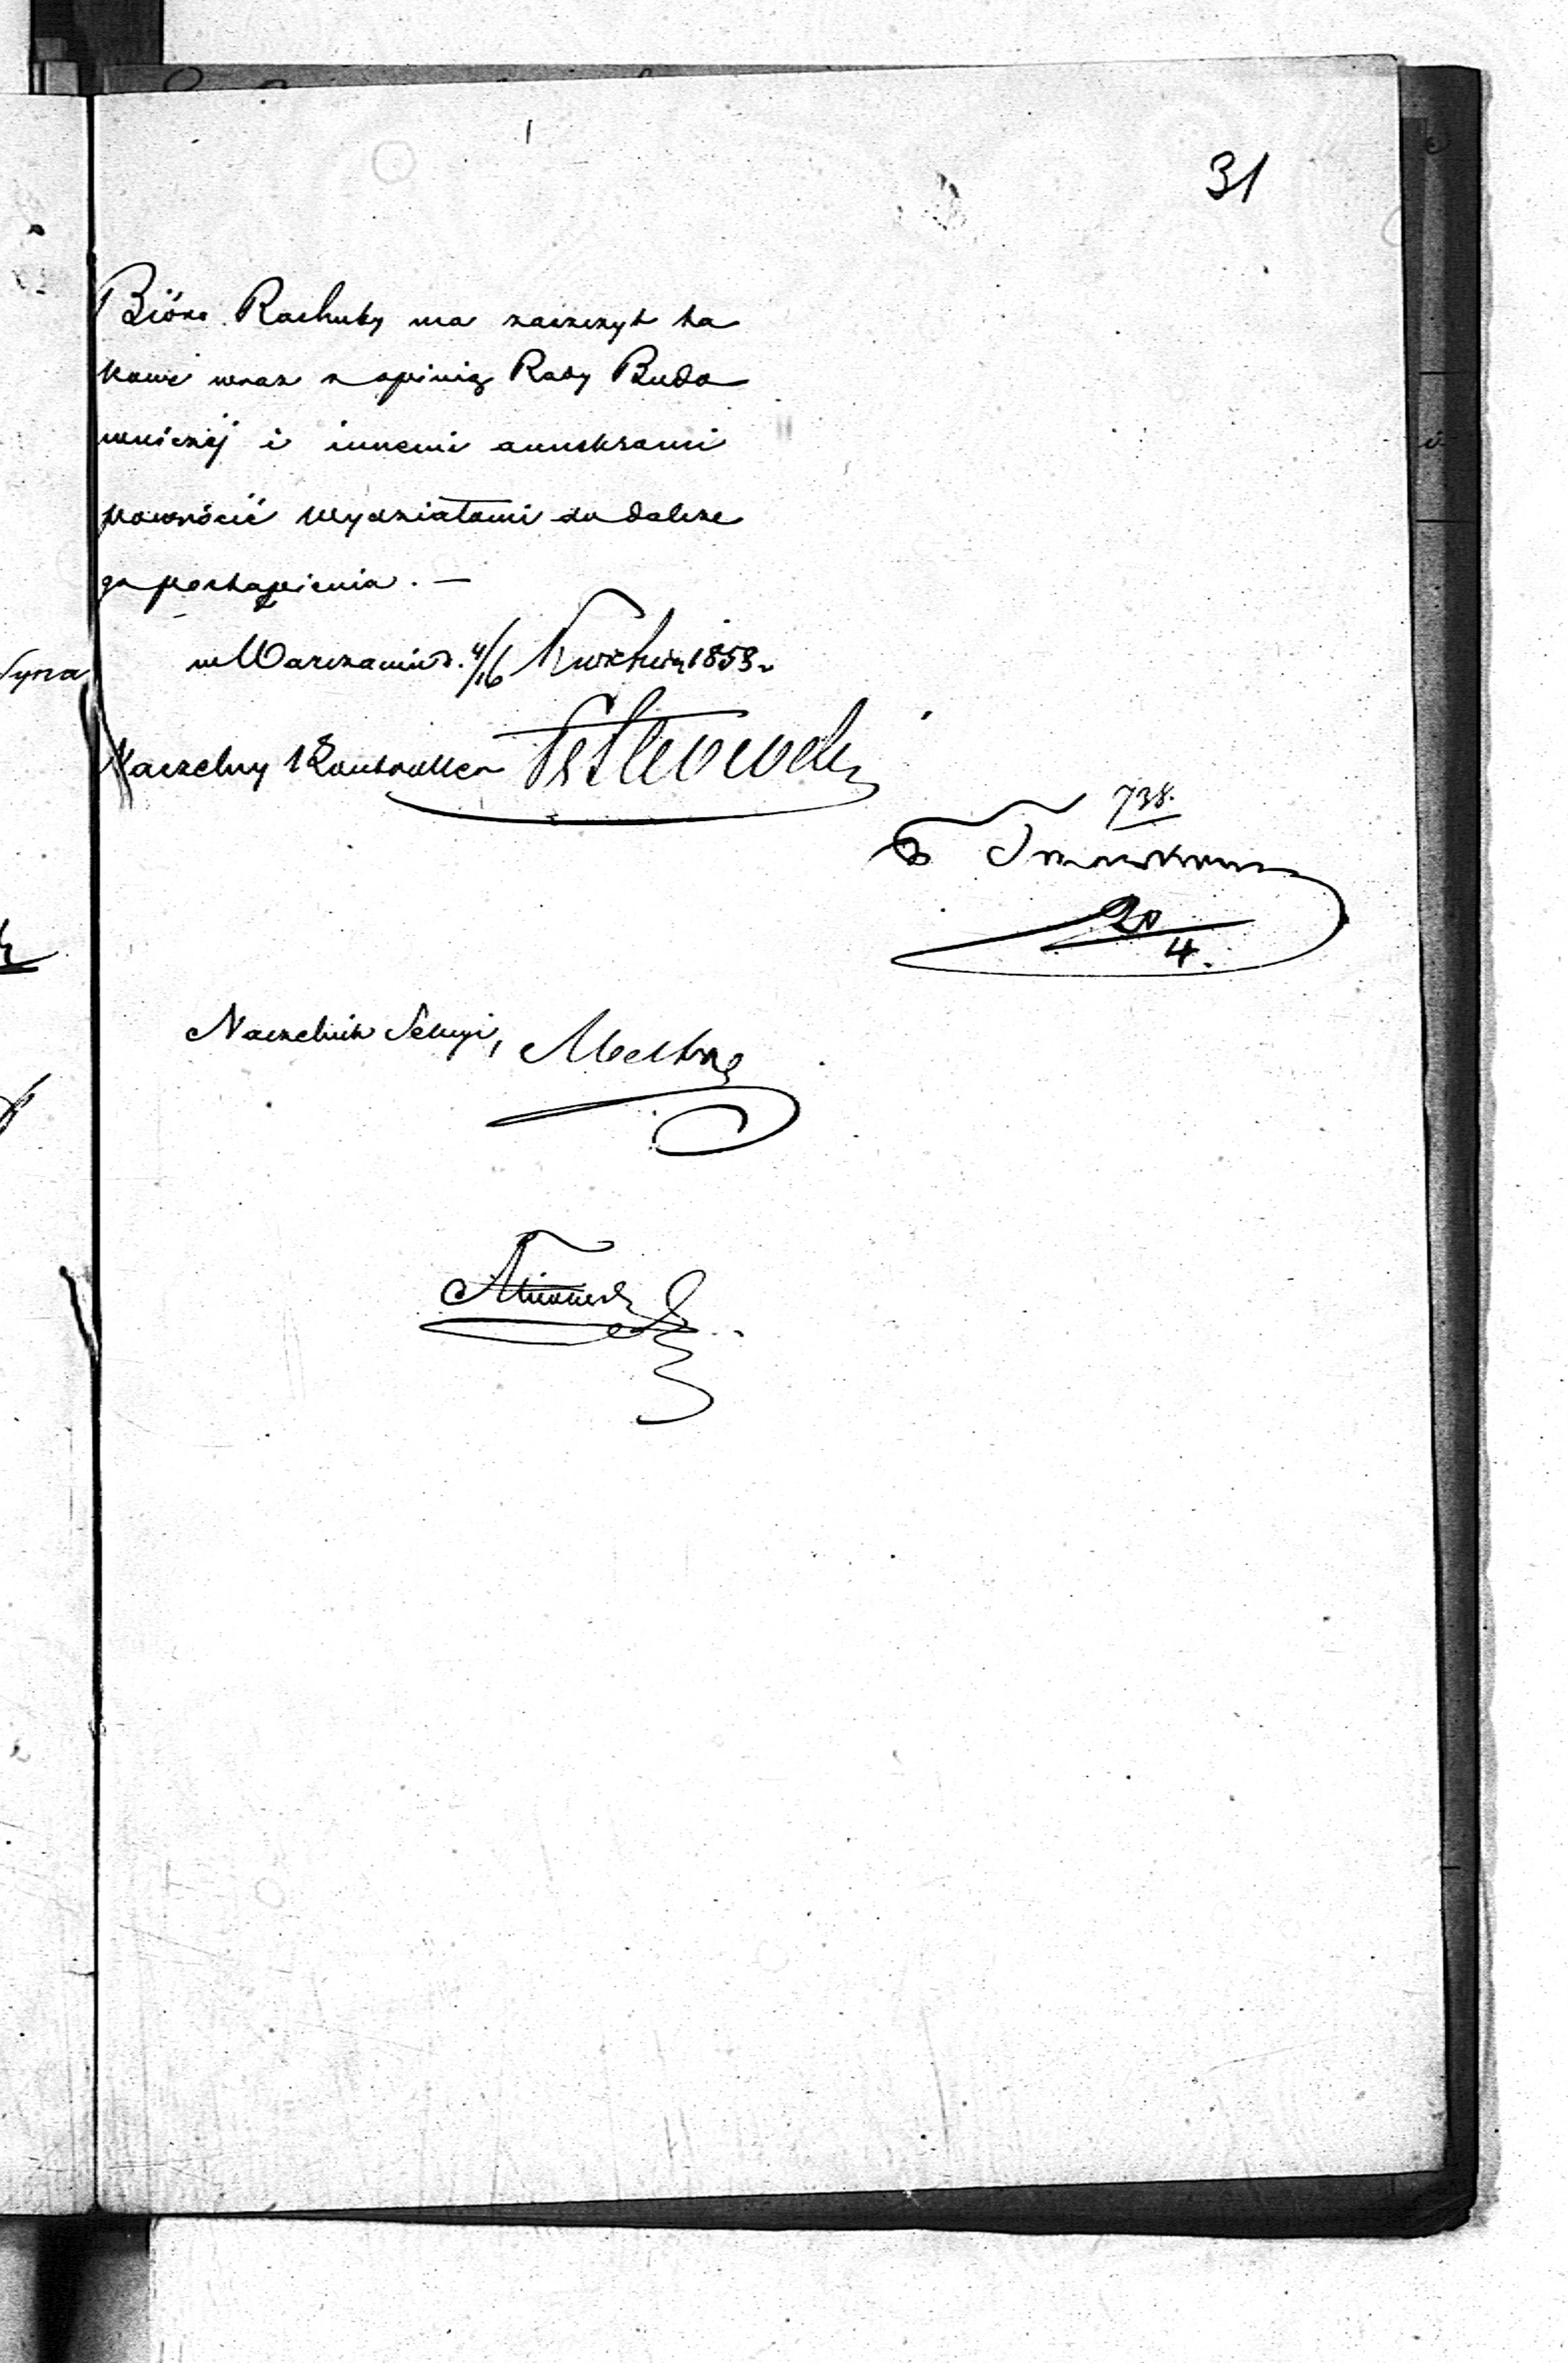 31
Bióro Rachuby ma zaszczyt ta
kowe wraz z opinią Rady Budo
wniczej i innemi annexami
powrócić Wydziałowi do dalsze
go postąpienia. —
w Warszawie d. 4/16 Kwietnia 1858 r
Naczelny Kontroller
738.
20/4.
Naczelnik Sekcyi,